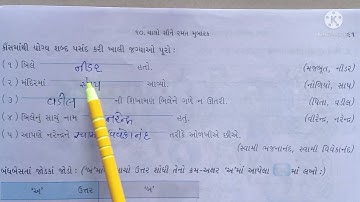 ૧૦. ચાલો સૌને રમત મુબારક ૬૧
કૌંસમાંથી યોગ્ય શબ્દ પસંદ કરી ખાલી જગ્યાઓ પૂરો :
(૧) બિલે નીડર હતો. (મજબૂત, નીડર)
(૨) મંદિરમાં સાપ આવ્યો. (નોળિયો, સાપ)
(૩) વડીલ ની શિખામણ બિલેને ગળે ન ઊતરી. (પિતા, વડીલ)
(૪) બિલેનું સાચું નામ નરેન્દ્ર હતું. (વીરેન્દ્ર, નરેન્દ્ર)
(૫) આપણે નરેન્દ્રને સ્વામી વિવેકાનંદ તરીકે ઓળખીએ છીએ.
(સ્વામી ભજનાનંદ, સ્વામી વિવેકાનંદ)
બંધબેસતાં જોડકાં જોડો : ('બ'માં આપેલો ઉત્તર શોધી તેનો ક્રમ-અક્ષર 'અ'માં આપેલા માં લખો :)
'અ' ઉત્તર 'બ'